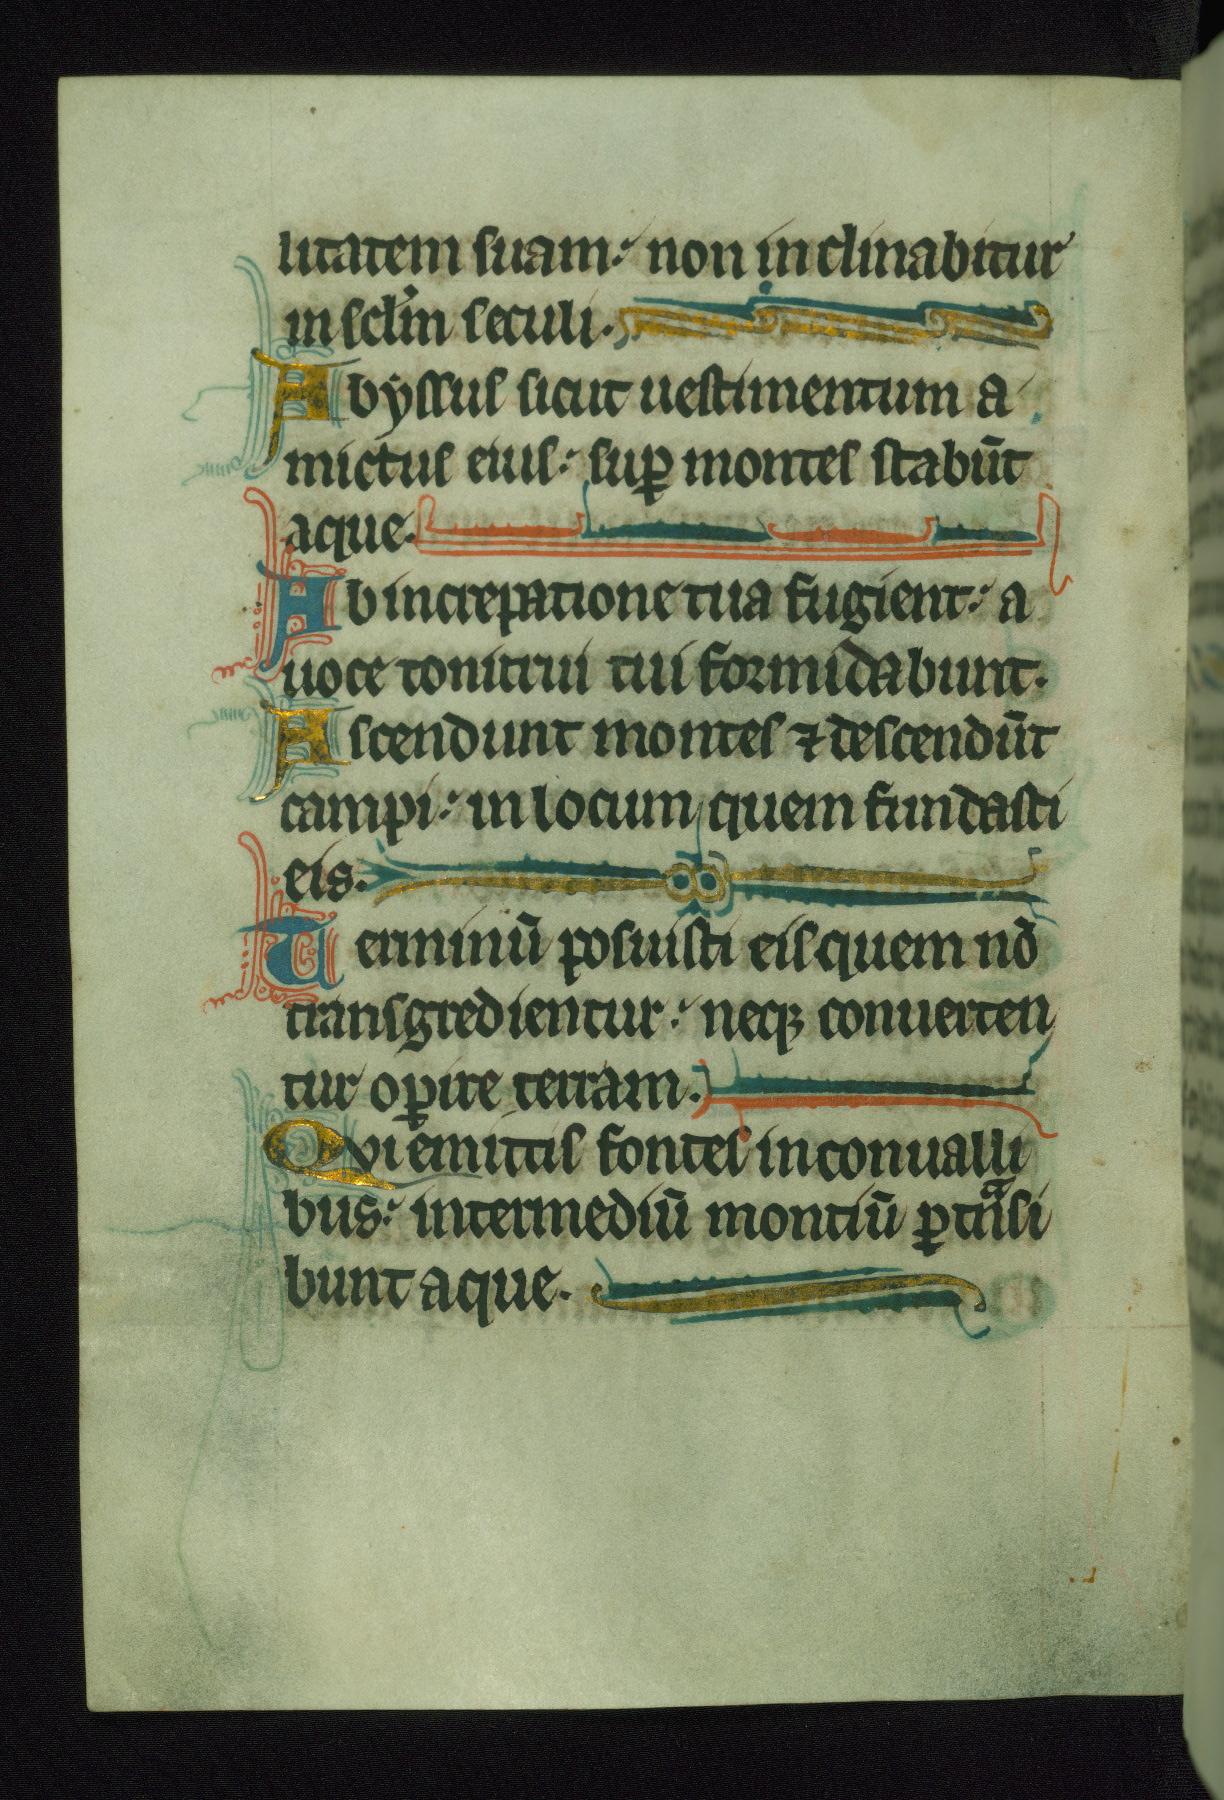 litatem suam: non inclinabitur
in sclm̄ seculi.
Abyssus sicut uestimentum a
mictus eius: suꝑ montes stabūt
aque.
Ab increpatione tua fugient: a
uoce tonitrui tui formidabunt.
Ascendunt montes ⁊ descendūt
campi: in locum quem fundasti
eis.
Terminū posuisti eis quem nō
transgredientur: neqꝫ conuerten
tur oꝑire terram.
Qui emittis fontes in conualli
bus: inter mediū montiū ꝑtͣnsi
bunt aque.